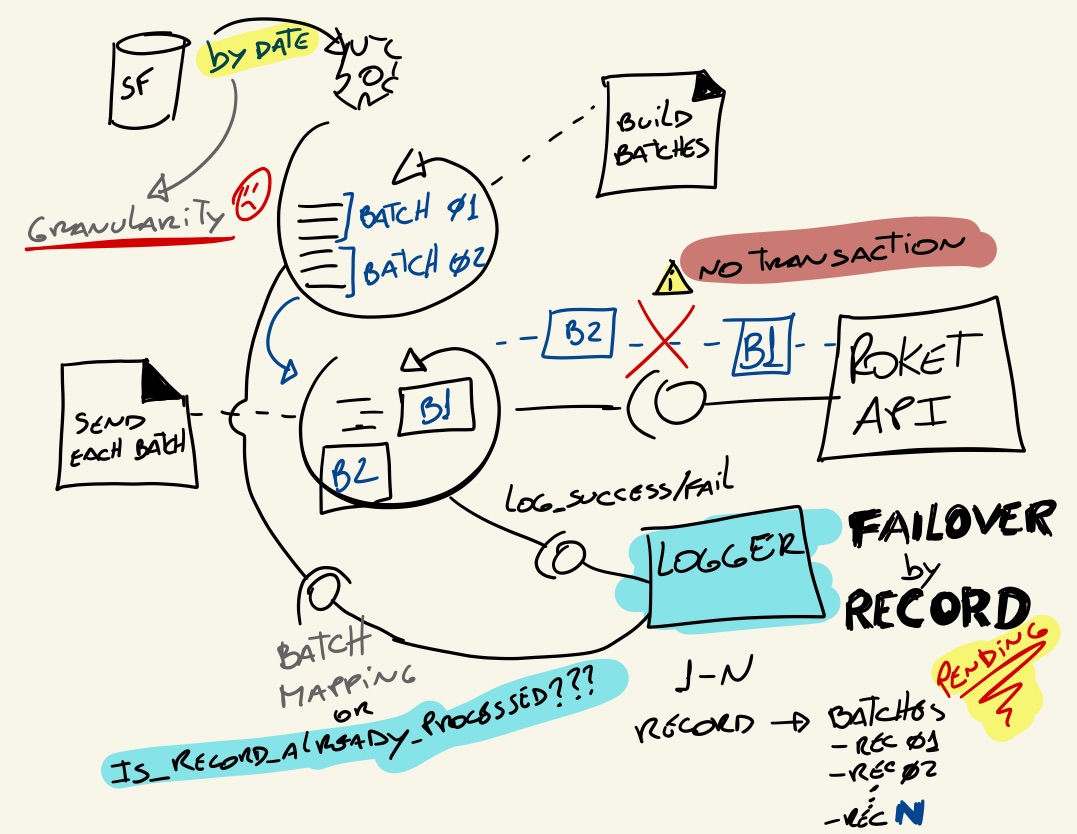 SF
by DATE
BUILD
BATCHES
GRANULARITY
BATCH 01
BATCH 02
NO TRANSACTION
B2
B1
ROKET
API
SEND
EACH BATCH
B1
B2
LOG_SUCCESS/FAIL
LOGGER
FAILOVER
by
RECORD
BATCH
MAPPING
OR
IS_RECORD_ALREADY_PROCESSED???
1-N
RECORD → BATCHES
PENDING
- REC 01
- REC 02
- REC N